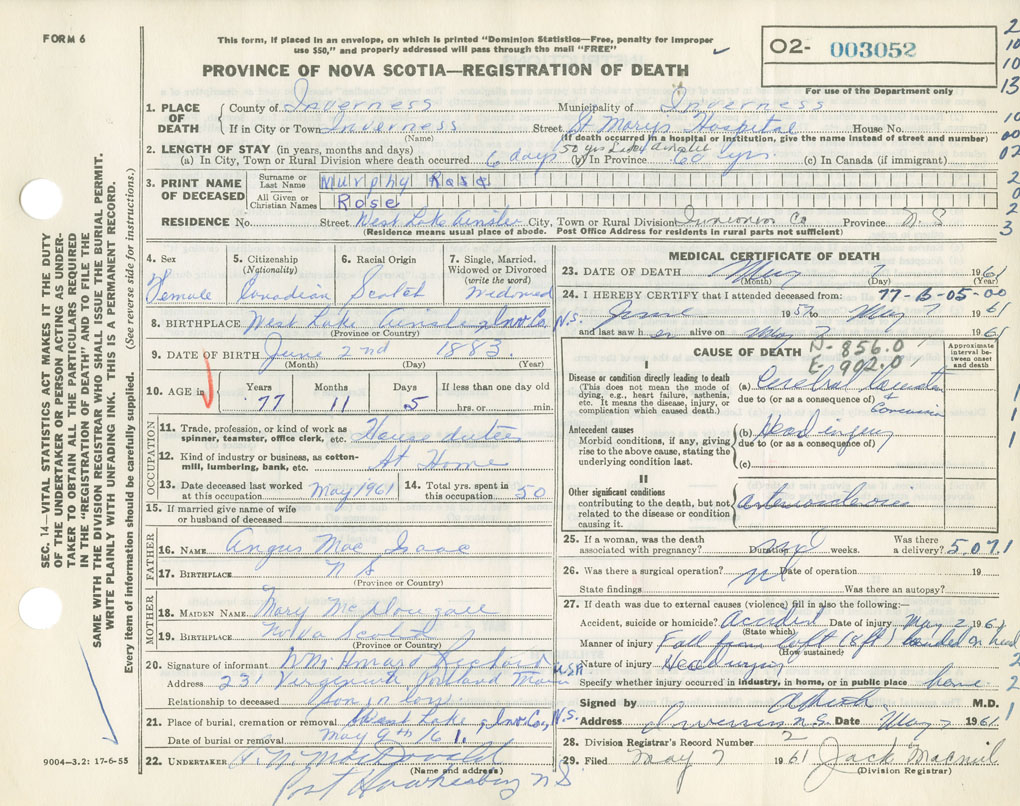 FORM 6
This form, if placed in an envelope, on which is printed "Dominion Statistics—Free, penalty for improper
use $50," and properly addressed will pass through the mail "FREE"
O2- 003052
For use of the Department only
PROVINCE OF NOVA SCOTIA—REGISTRATION OF DEATH
SEC. 14—VITAL STATISTICS ACT MAKES IT THE DUTY
OF THE UNDERTAKER OR PERSON ACTING AS UNDER-
TAKER TO OBTAIN ALL THE PARTICULARS REQUIRED
IN THE "REGISTRATION OF DEATH" AND TO FILE THE
SAME WITH THE DIVISION REGISTRAR WHO SHALL ISSUE THE BURIAL PERMIT.
WRITE PLAINLY WITH UNFADING INK. THIS IS A PERMANENT RECORD.
Every item of information should be carefully supplied. (See reverse side for instructions.)
1. PLACE OF DEATH
County of Inverness Municipality of Inverness
If in City or Town Inverness Street St Mary's Hospital House No.
(Name) (If death occurred in a hospital or institution, give the name instead of street and number)
2. LENGTH OF STAY (in years, months and days) 50 yrs
(a) In City, Town or Rural Division where death occurred 6 days (b) In Province 60 yrs. (c) In Canada (if immigrant)
3. PRINT NAME OF DECEASED
Surname or Last Name Murphy Rose
All Given or Christian Names Rose
RESIDENCE No. Street West Lake Ainslie City, Town or Rural Division Inverness Co Province N. S
(Residence means usual place of abode. Post Office Address for residents in rural parts not sufficient)
4. Sex Female
5. Citizenship (Nationality) Canadian
6. Racial Origin Scotch
7. Single, Married, Widowed or Divorced (write the word) Widowed
8. BIRTHPLACE West Lake Ainslie, Inv Co, N.S.
(Province or Country)
9. DATE OF BIRTH June 2nd 1883.
(Month) (Day) (Year)
10. AGE in Years 77 Months 11 Days 5 If less than one day old hrs. or min.
OCCUPATION
11. Trade, profession, or kind of work as spinner, teamster, office clerk, etc. House duties
12. Kind of industry or business, as cotton-mill, lumbering, bank, etc. At Home
13. Date deceased last worked at this occupation May 1961 14. Total yrs. spent in this occupation 50
15. If married give name of wife or husband of deceased
FATHER
16. NAME Angus Mac Isaac
17. BIRTHPLACE N S
(Province or Country)
MOTHER
18. MAIDEN NAME Mary McDougall
19. BIRTHPLACE Nova Scotia
(Province or Country)
20. Signature of informant Wm. Howard
Address 231 Portland Maine USA
Relationship to deceased son in law
21. Place of burial, cremation or removal West Lake, Inv Co, N.S.
Date of burial or removal May 9th 61.
22. UNDERTAKER MacDonald
(Name and address)
Port Hawkesbury N S.
9004—3.2: 17-6-55
MEDICAL CERTIFICATE OF DEATH
23. DATE OF DEATH May 7 1961
(Month) (Day) (Year)
24. I HEREBY CERTIFY that I attended deceased from: 77-B-05-00
June 1957 to May 7 1961
and last saw her alive on May 7 1961
CAUSE OF DEATH N-856.0
E-902.0
Approximate interval between onset and death
I
Disease or condition directly leading to death (a) Cerebral
(This does not mean the mode of dying, e.g., heart failure, asthenia, etc. It means the disease, injury, or complication which caused death.)
due to (or as a consequence of)
Antecedent causes (b) Head injury
Morbid conditions, if any, giving rise to the above cause, stating the underlying condition last.
due to (or as a consequence of)
(c)
II
Other significant conditions contributing to the death, but not related to the disease or condition causing it.
25. If a woman, was the death associated with pregnancy? Duration weeks. Was there a delivery? 5071
26. Was there a surgical operation? Date of operation 19
State findings Was there an autopsy?
27. If death was due to external causes (violence) fill in also the following:—
Accident, suicide or homicide? Accident Date of injury May 2 1961
(State which)
Manner of injury Fall from loft (8ft) landed on head
(How sustained)
Nature of injury Head injury
Specify whether injury occurred in industry, in home, or in public place home
Signed by M.D.
Address Inverness N.S. Date May 7 1961
28. Division Registrar's Record Number 2
29. Filed May 7 1961 Jack Macneil
(Division Registrar)